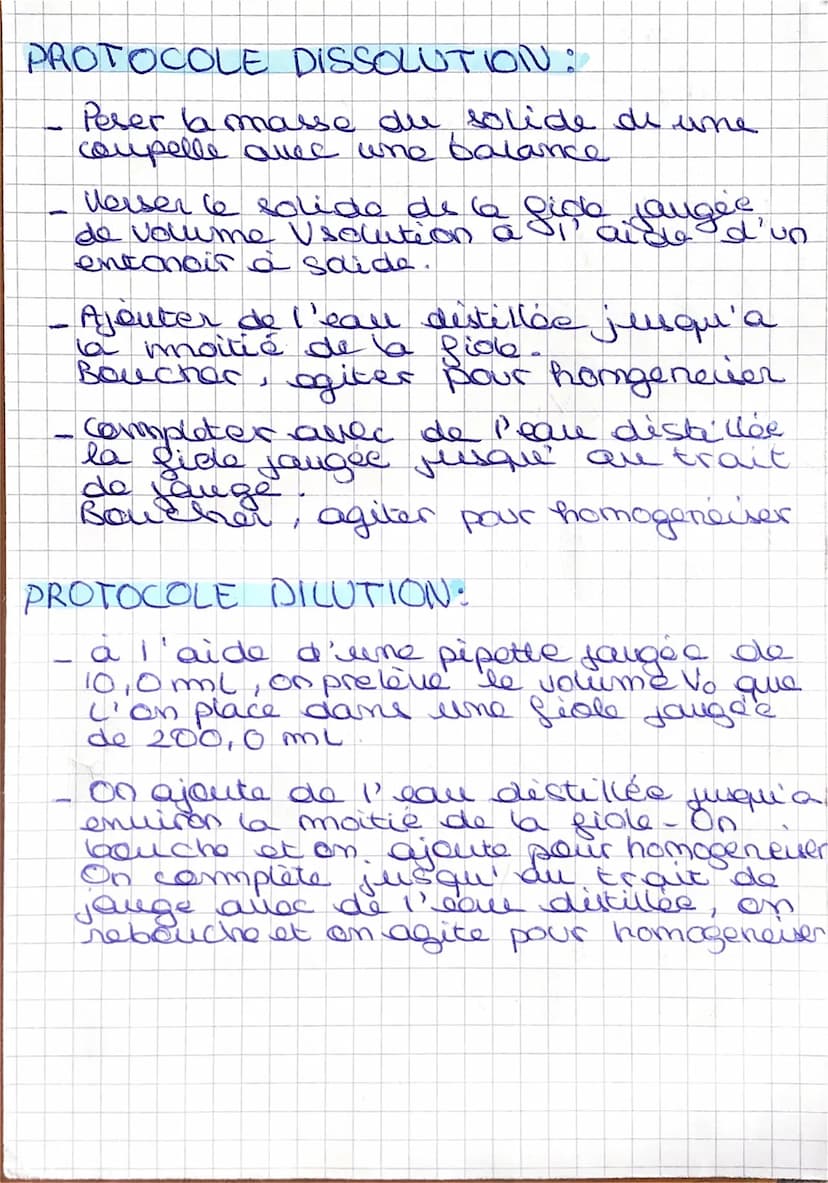 PROTOCOLE DISSOLUTION :
- Peser la masse du solide ds une
coupelle avec une balance
- Verser le solide ds la fiole jaugée
de volume Vsolution à l'aide d'un
entonoir à solide.
- Ajouter de l'eau distillée jusqu'a
la moitié de la fiole.
Boucher, agiter pour homgeneiser
- Completer avec de l'eau distillée
la fiole jaugée jusqu' au trait
de jauge.
Boucher, agiter pour homogenéiser
PROTOCOLE DILUTION :
- à l'aide d'une pipette jaugée de
10,0 mL, on prelève le volume V0 que
l'on place dans une fiole jaugée
de 200,0 mL
- On ajoute de l'eau distillée jusqu'a
environ la moitié de la fiole - On
bouche et on ajoute pour homogeneiser
On complète jusqu' au trait de
jauge avec de l'eau distillée, on
rebouche et on agite pour homogeneiser